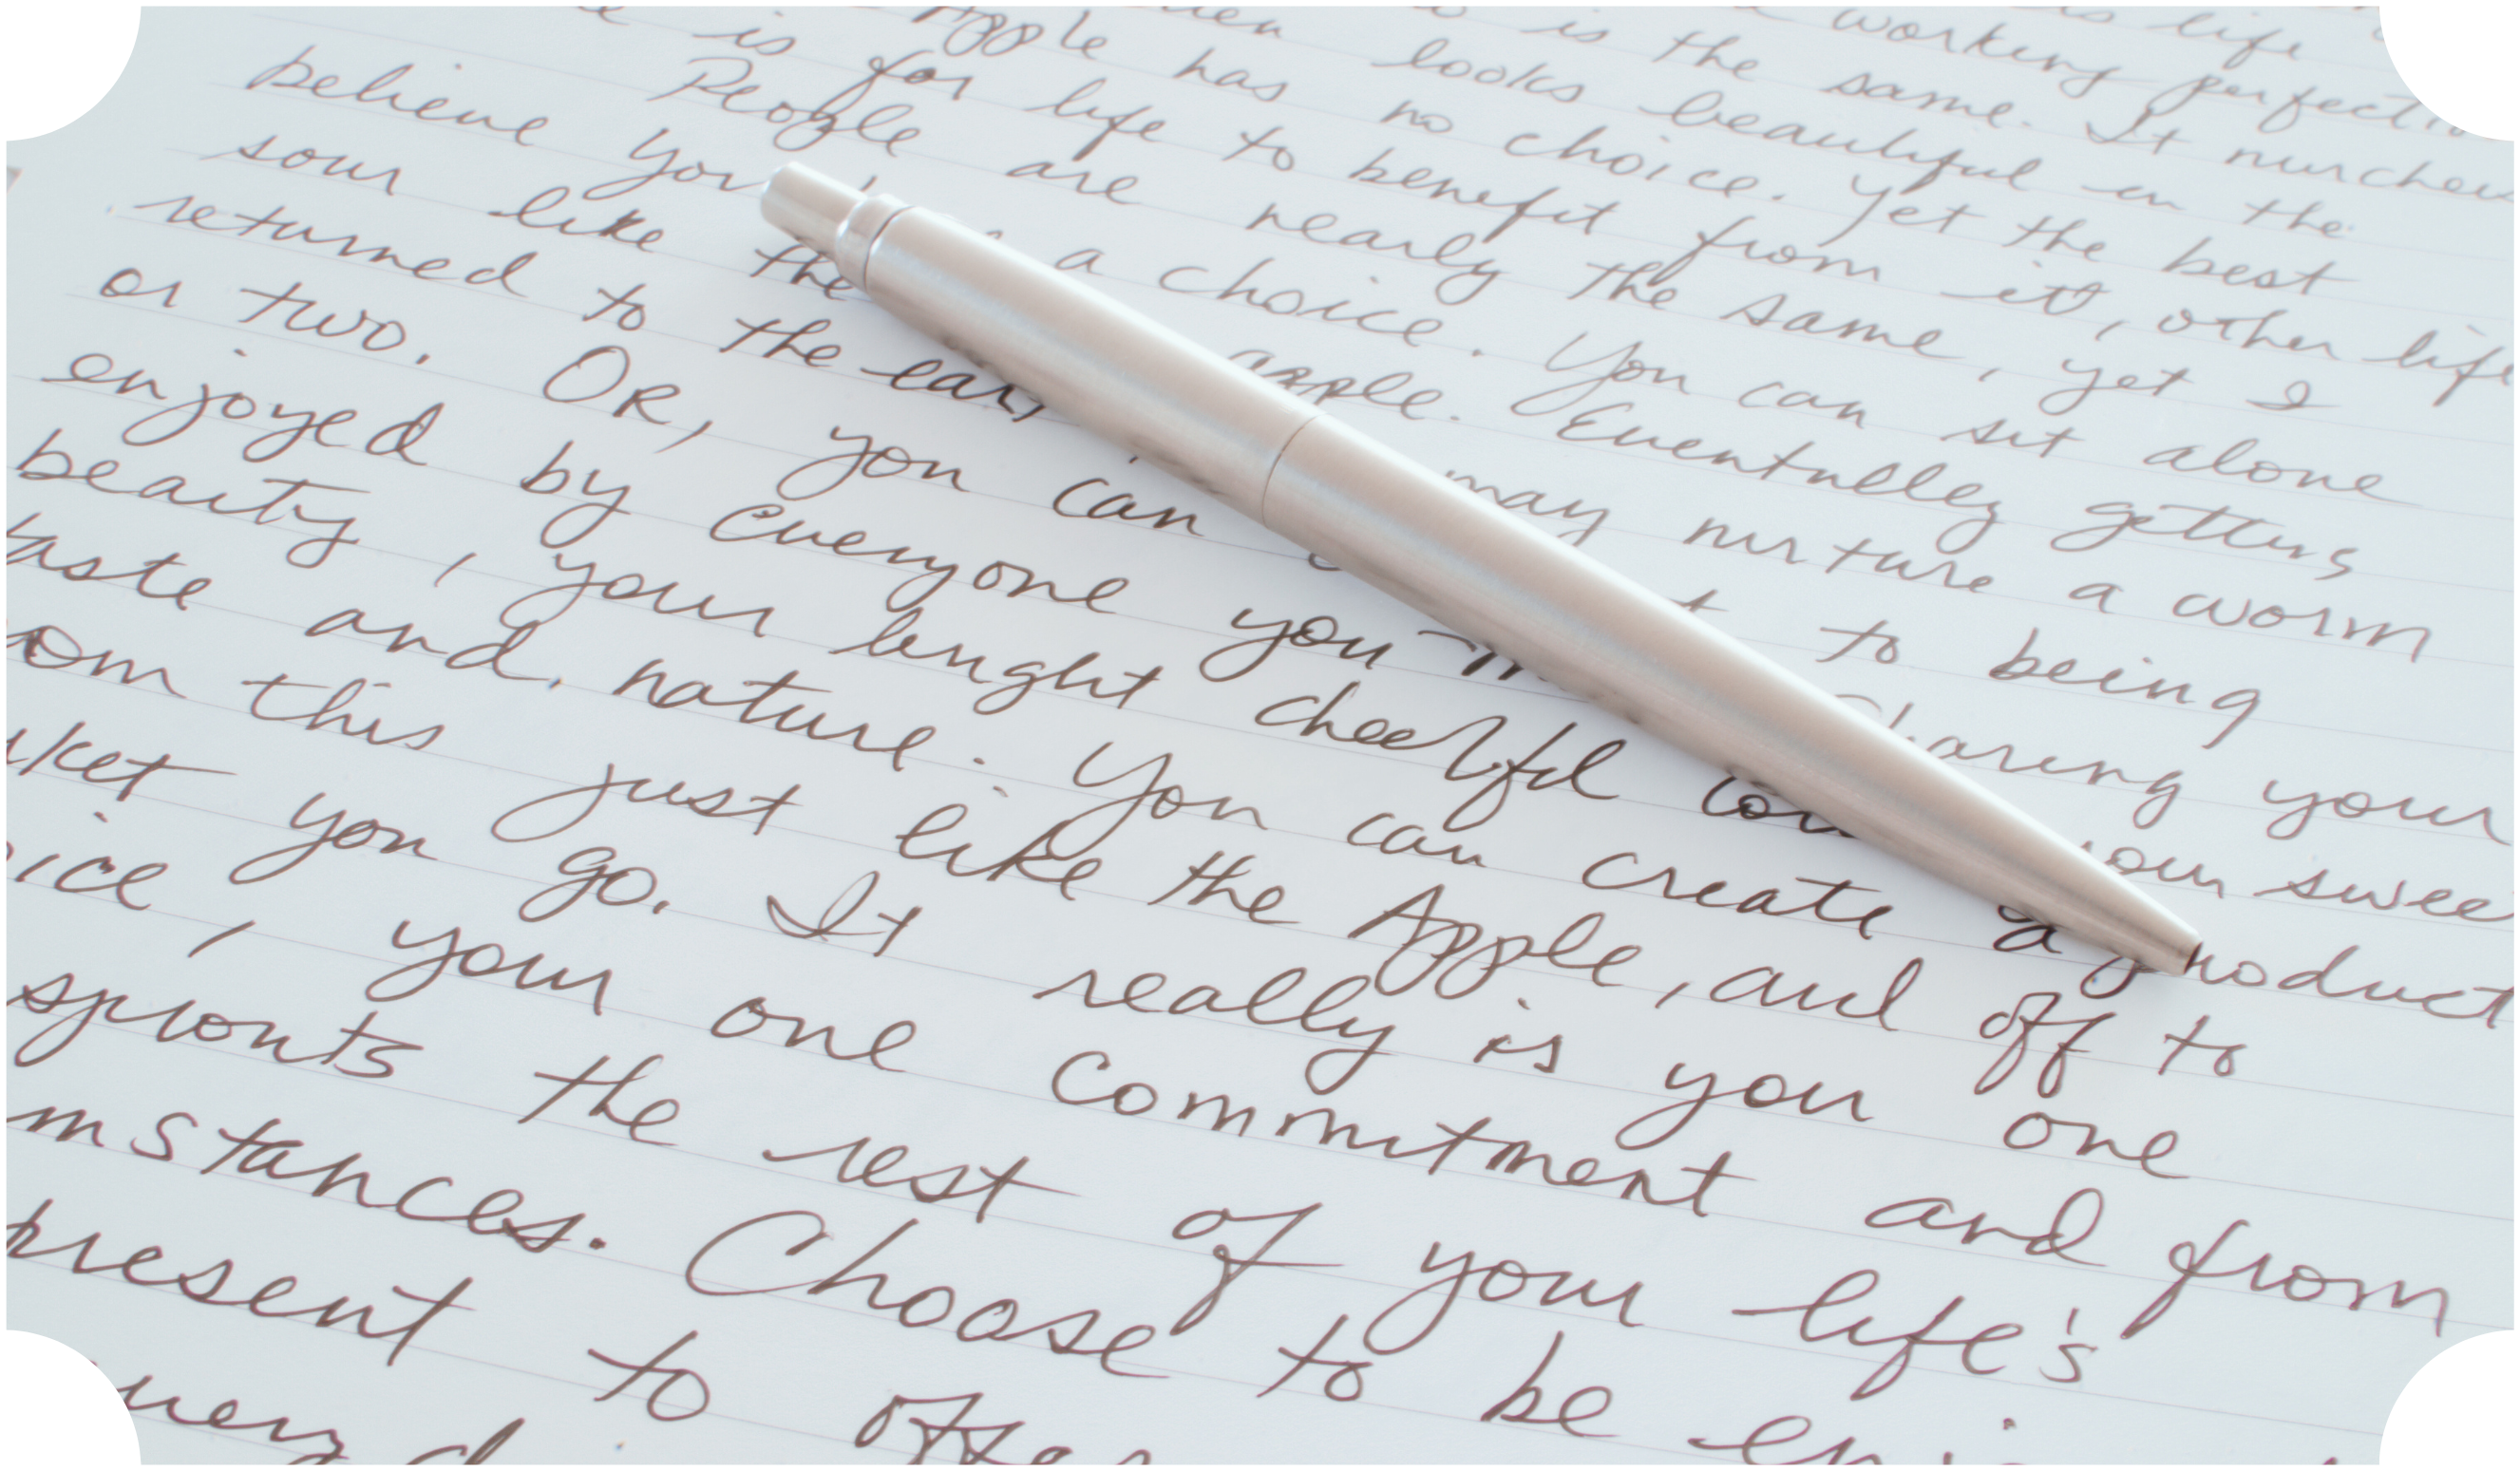 life
working perfect
is the same. It nurches
looks beautiful in the
Apple has no choice. Yet the best
is for life to benefit from it, other life
People are nearly the same, yet I
believe you a choice. You can sit alone
sour like the apple. Eventnlley gettins
returned to the may nurture a worm
or two. OR, you can to being
enjoyed by everyone you Sharing your
beauty, your cheerful your swee
taste and nature. You can create a product
om this just like the Apple, and off to
rket you go. It really is you one
oice, your one commitment and from
sprouts the rest of your life's
mstances. Choose to be
present to